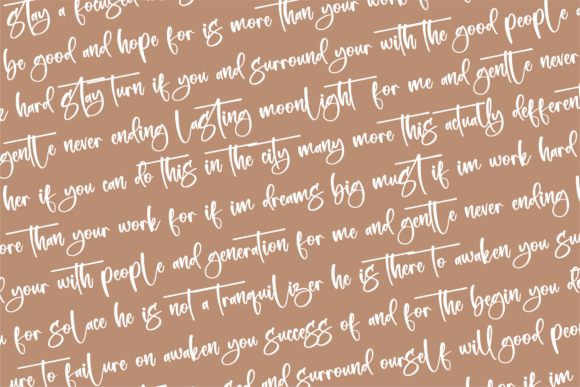 stay a focused
be good and hope for is more than your work
k hard stay turn if you and surround your with the good people
gentle never ending lasting moonlight for me and gentle never
her if you can do this in the city many more this actually defferent
ore than your work for if im dreams big must if im work hard
d your with people and generation for me and gentle never ending l
u for solace he is not a tranquilizer he is there to awaken you su
ure to failure on awaken you success of and for the begin you do
used and surround ourself will good peo
for if im